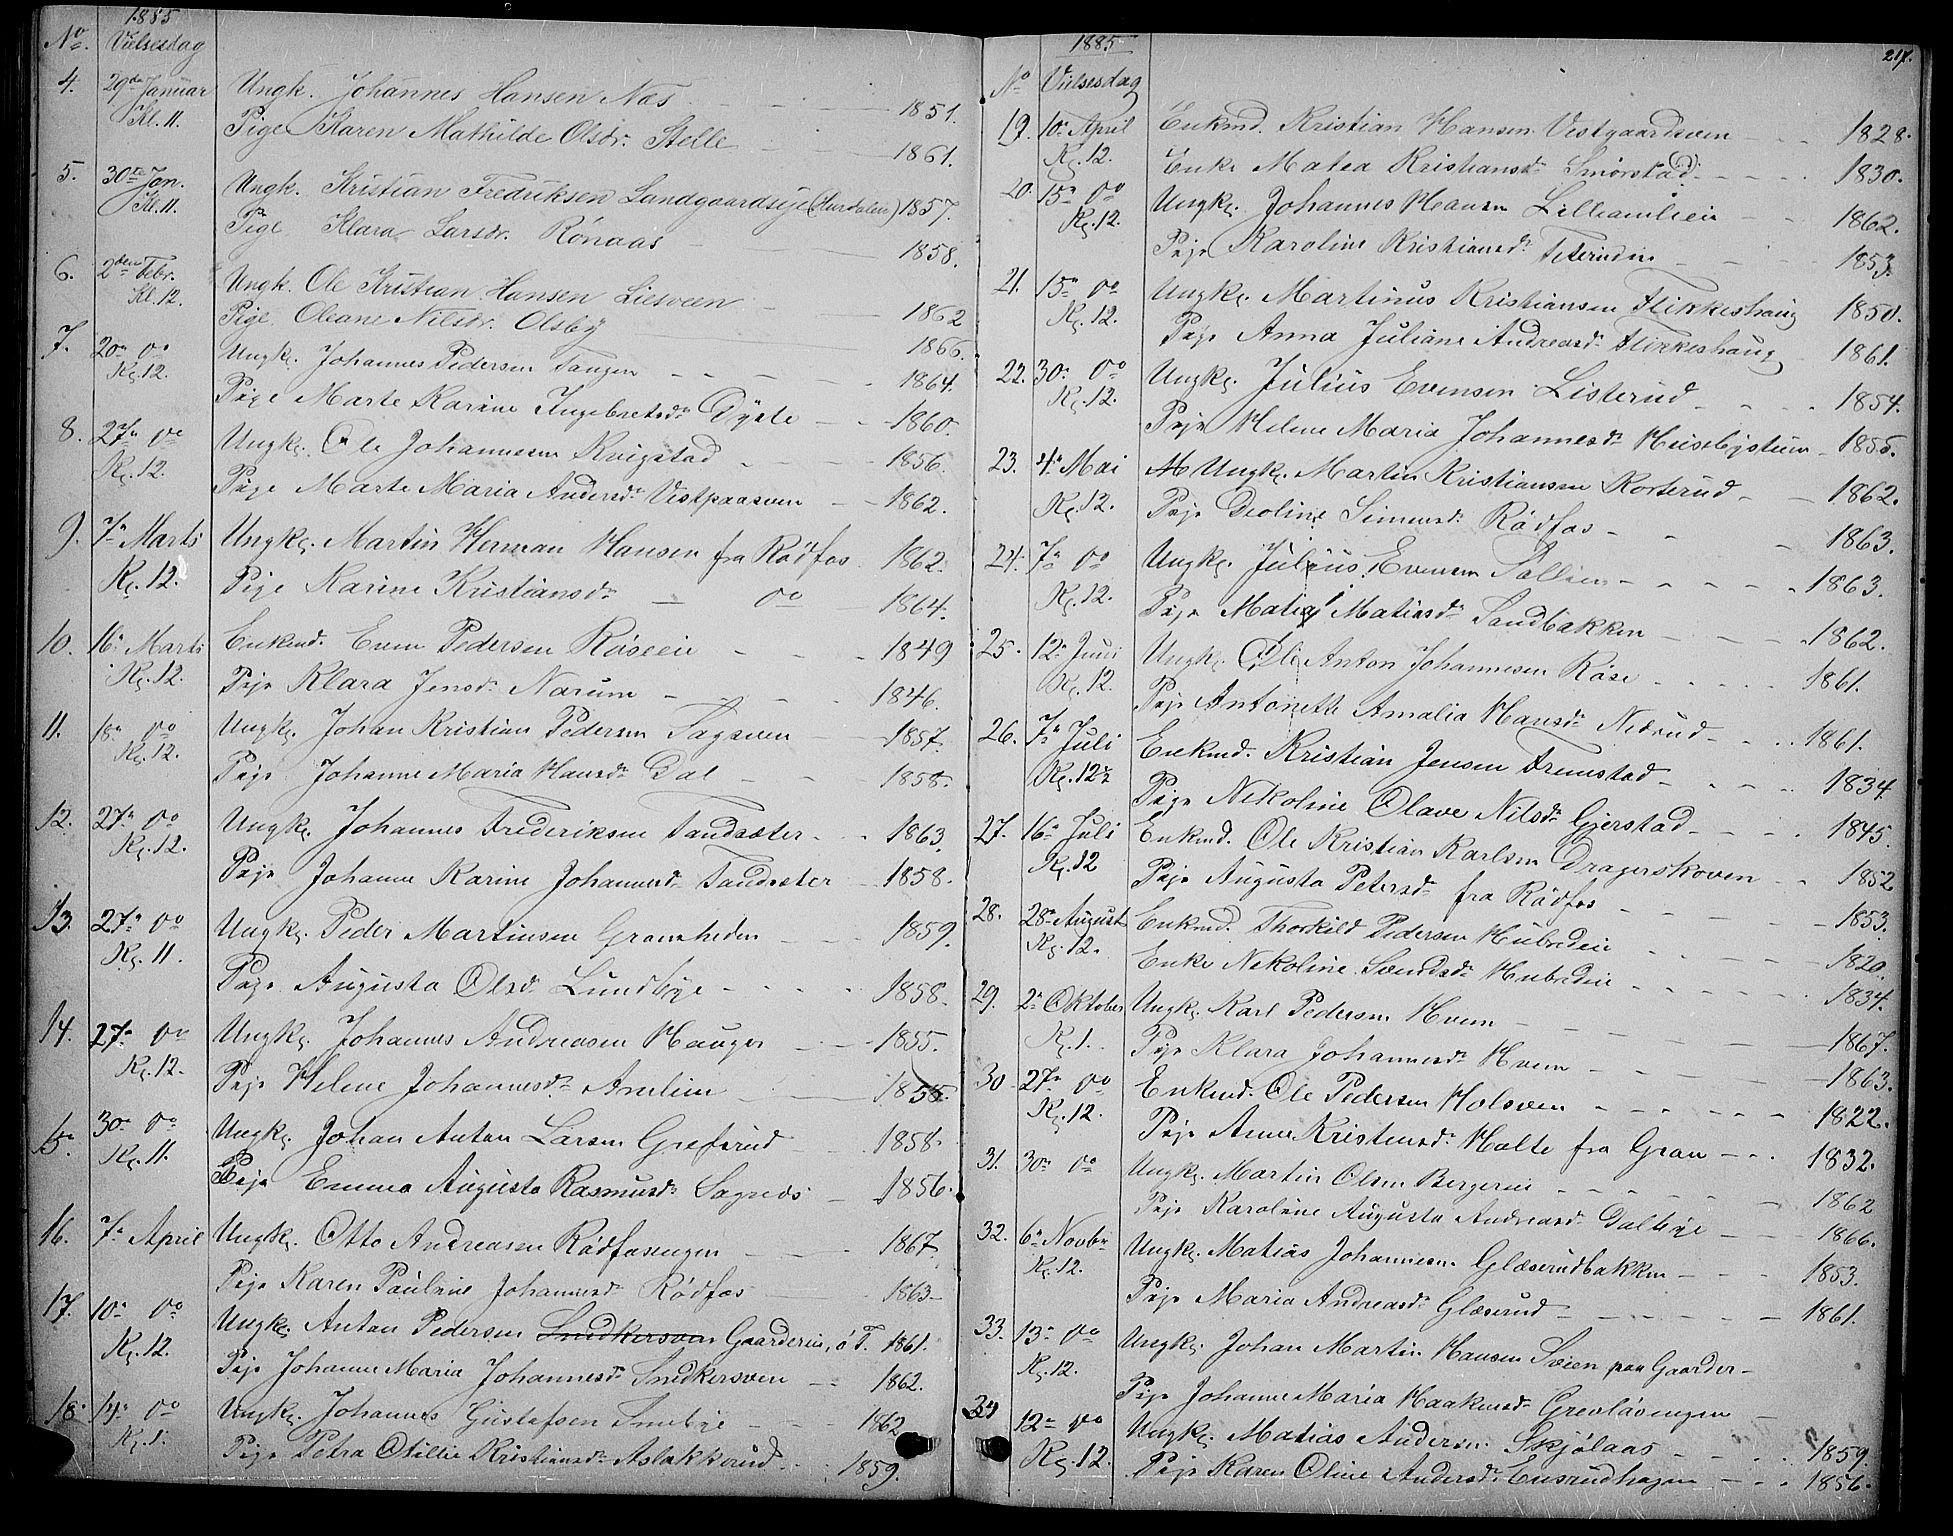 1885
No. Vielsesdag
4. 29de Januar Ungk. Johannes Hansen Næs 1851.
Kl. 11. Pige Karen Mathilde Olsdr. Stelle 1861.
5. 30te Jan. Ungk. Kristian Fredriksen Landgaardseje (Hurdalen) 1857.
Kl. 11. Pige Klara Larsdr. Rönaas 1858.
6. 2den Febr. Ungk. Ole Kristian Hansen Liesveen 1862
Kl. 12. Pige Oleane Nilsdr. Olsby 1866.
7. 20n do Ungk. Johannes Pedersen Tangen 1864.
Kl. 12. Pige Marte Karine Ingebretsdr Dyste 1860.
8. 27n do Ungk. Ole Johannesen Kvigstad 1856.
Kl. 12. Pige Marte Maria Andersdr 1862.
9. 7n Marts Ungk. Martin Herman Hansen fra Rödfos 1862.
Kl. 12. Pige Karine Kristiansdr do 1864.
10. 16n Marts Enkmd. Even Pedersen Röseie 1849
Kl. 12. Pige Klara Jensdr Narum 1846.
11. 18n do Ungk. Johan Kristian Pedersen Sagsveen 1857.
Kl. 12. Pige Johanne Maria Hansdr Dal 1858.
12. 27n do Ungk. Johannes Frederiksen Tandsæter 1863.
Kl. 12. Pige Johanne Karine Johannesdr Tandsæter 1858.
13. 27n do Ungk. Peder Martinsen Granheden 1859.
Kl. 11. Pige Augusta Olsdr Lundbye 1858.
14. 27n do Ungk. Johannes Andreasen Hauger 1855.
Kl. 12. Pige Helene Johannesdr 1855.
15. 30n do Ungk. Johan Anton Larsen Grefsrud 1858.
Kl. 11. Pige Emma Augusta Rasmusdr 1856.
16. 7n April Ungk. Otto Andreasen Rödfosengen 1867.
Pige Karen Pauline Johannesdr Rödfos 1863
17. 10n do Ungk. Anton Pedersen Snedkersveen Gaardereie, ö T. 1861.
Kl. 12. Pige Johanne Maria Johannesdr Snedkersveen 1862.
18. 14n do Ungk. Johannes Gustafsen 1862
Kl. 1. Pige Petra Otilie Kristiansdr Aslaksrud 1859.
217.
1885
No Vielsesdag
19. 10n April Enkmd. Kristian Hansen Vestgaardsveen 1828.
Kl. 12. Enke Matea Kristiansdr Smörstad 1830.
20. 15n do Ungk. Johannes Hansen 1862.
Kl. 12. Pige Karoline Kristiansdr 1853.
21. 15n do Ungk. Martinus Kristiansen Flikkeshaug 1850.
Kl. 12. Pige Anna Juliane Andreasdr Flikkeshaug 1861.
22. 30n do Ungk. Julius Evensen Listerud 1854.
Kl. 12. Pige Helene Maria Johannesdr Husebystuen 1855.
23. 4n Mai Ungk. Martin Kristiansen Korterud 1862.
Kl. 12. Pige Deoline Simensdr Rödfos 1863.
24. 7n do Ungk. Julius Evensen Sollien 1863.
Kl. 12. Pige Matea Matiasdr Sandbakken 1862.
25. 12n Juni Ungk. Ole Anton Johannesen Röse 1861.
Kl. 12. Pige Antonette Amalia Hansdr Nedrud 1861.
26. 7n Juli Enkmd. Kristian Jensen Fremstad 1834
Kl. 12½ Pige Nikoline Olave Nilsdr Gjerstad 1845.
27. 16n Juli Enkmd. Ole Kristian Karlsen Dragerskoven 1852
Kl. 12 Pige Augusta Petersdr fra Rödfos 1853.
28. 28n August Enkmd. Thorkild Pedersen Hubredeie 1820.
Kl. 12. Enke Nikoline Svendsdr Hubredeie 1834.
29. 2n Oktober Ungk. Karl Pedersen Hvem 1867.
Kl. 1. Pige Klara Johannesdr Hvem 1863.
30 27n do Enkmd. Ole Pedersen Holsveen 1822.
Kl. 12. Pige Anne Kristensdr Holte fra Gran 1832.
31. 30n do Ungk. Martin Olsen Bergereie 1862
Pige Karoline Augusta Andreasdr Dalbye 1866.
32. 6n Novbr Ungk. Matias Johannesen Glæserudbakken 1853.
Kl. 12. Pige Maria Andreasdr Glæserud 1861.
33. 13n do Ungk. Johan Martin Hansen Sveen paa Gaarder
Kl. 12. Pige Johanne Maria Haakensdr
34 12n do Ungk. Matias Andersen Skjölaas 1859.
Kl. 12. Pige Karen Oline Andersdr Ensrudhagen 1856.